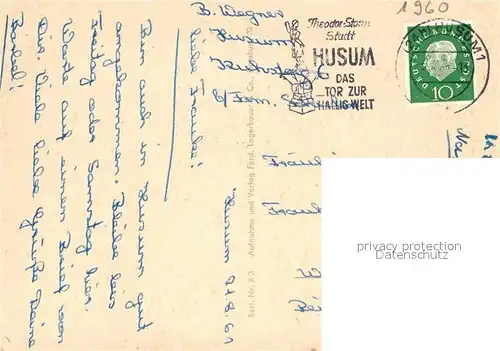 1960
B. Wegner
Husum
Theodor-Storm
Stadt
HUSUM
DAS
TOR ZUR
HALLIG-WELT
HUSUM 1
DEUTSCHE BUNDESPOST
10
Husum 27.8.61
Liebe Frauke!
Bin auch in Husum gut
angekommen. Bleibe bis
Freitag oder Samstag hier.
Warte auf einen Brief von
Dir. Viele liebe Grüße Deine
Bärbel!
Best. Nr. X 3 Aufnahme und Verlag Ferd. Lagerbauer
Fräul
Fräul
privacy protection
VINTAGE POSTCARDS